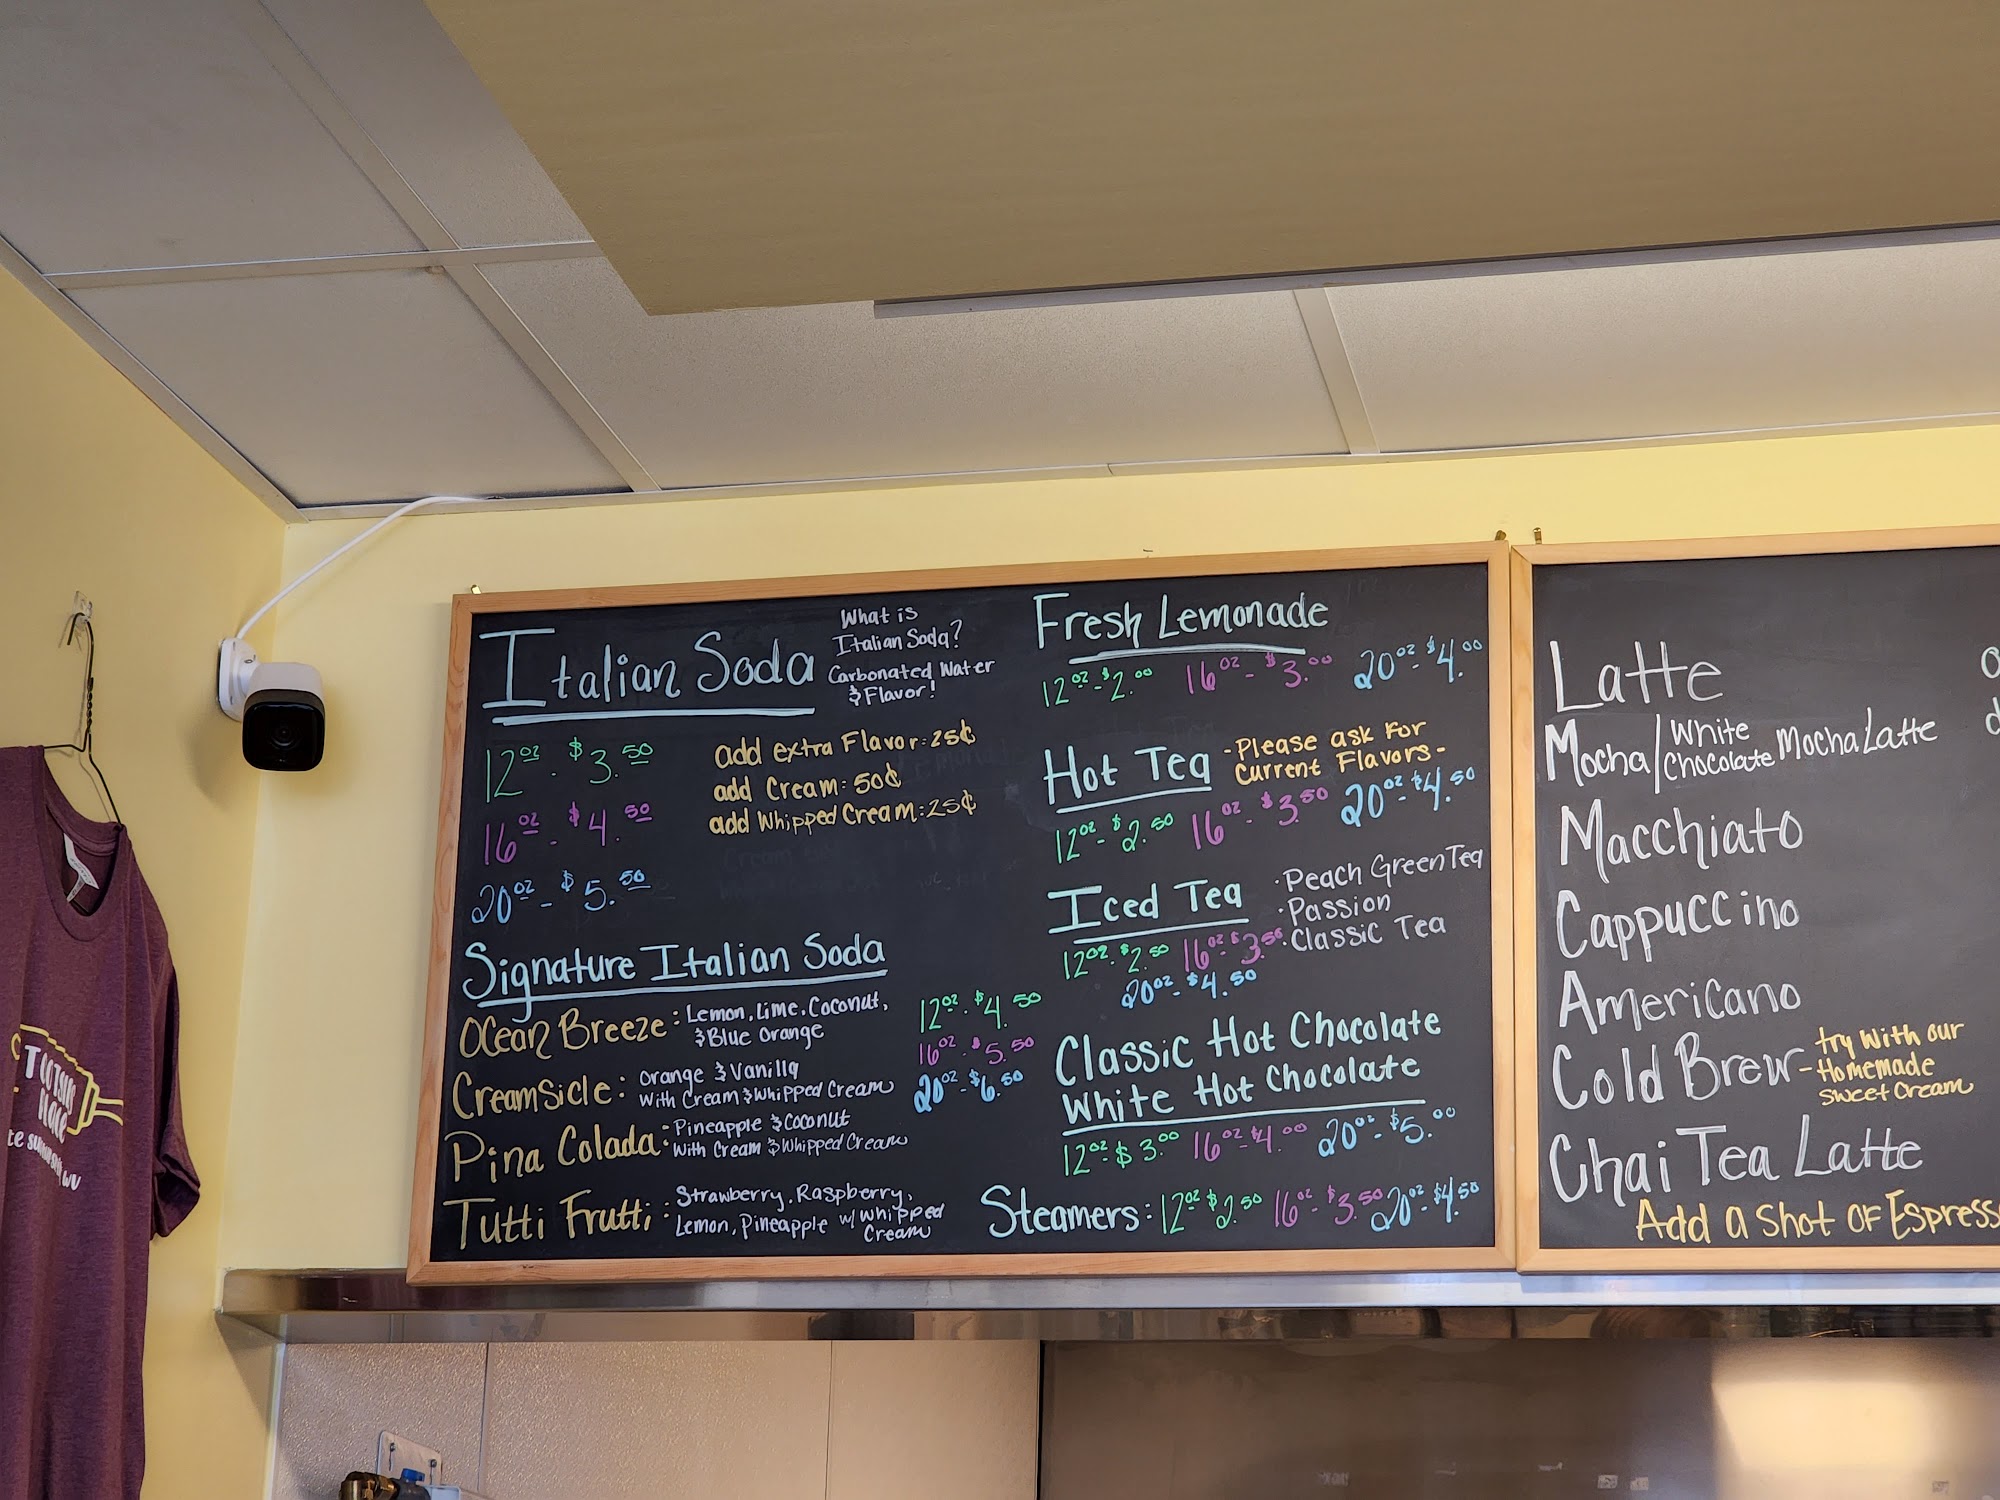 Italian Soda
What is
Italian Soda?
Carbonated Water
& Flavor!
12oz - $3.50
16oz - $4.50
20oz - $5.50
add extra Flavor: 25¢
add Cream: 50¢
add Whipped Cream: 25¢
Signature Italian Soda
Ocean Breeze: Lemon, Lime, Coconut,
& Blue Orange
Creamsicle: Orange & Vanilla
With Cream & Whipped Cream
Pina Colada: Pineapple & Coconut
With Cream & Whipped Cream
Tutti Frutti: Strawberry, Raspberry,
Lemon, Pineapple w/ Whipped
Cream
12oz - $4.50
16oz - $5.50
20oz - $6.50
Fresh Lemonade
12oz - $2.00 16oz - $3.00 20oz - $4.00
Hot Tea - Please ask For
Current Flavors -
12oz - $2.50 16oz - $3.50 20oz - $4.50
Iced Tea
· Peach Green Tea
· Passion
· Classic Tea
12oz - $2.50 16oz - $3.50
20oz - $4.50
Classic Hot Chocolate
White Hot Chocolate
12oz - $3.00 16oz - $4.00 20oz - $5.00
Steamers: 12oz $2.50 16oz - $3.50 20oz - $4.50
Latte
Mocha/White Chocolate Mocha Latte
Macchiato
Cappuccino
Americano
Cold Brew - try With our
Homemade
Sweet Cream
Chai Tea Latte
Add a Shot of Espress